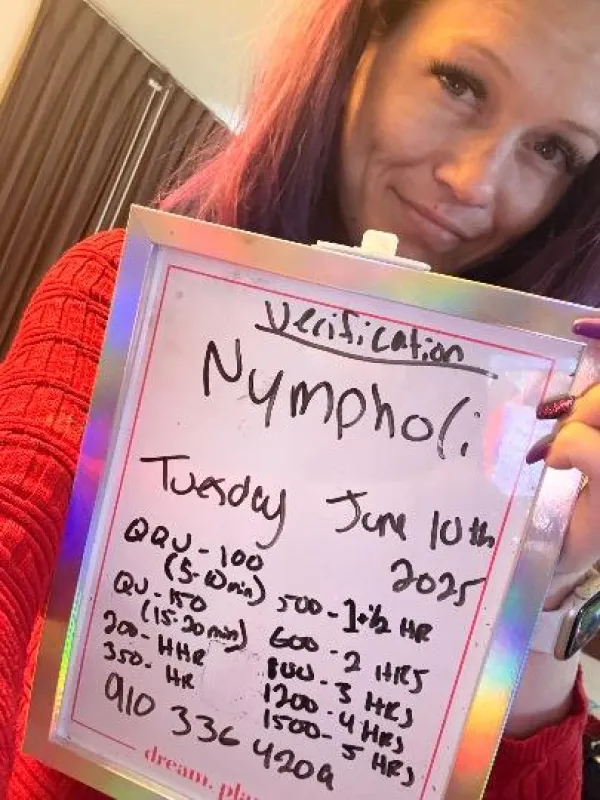 Verification
Nympholi
Tuesday June 10th
2025
QQU-100
(5-10min)
QU-150
(15-20min)
200-HHR
350-HR
500-1+½ HR
600-2 HRS
800-3 HRS
1200-4 HRS
1500-5 HRS
910 336 4209
dream. pla